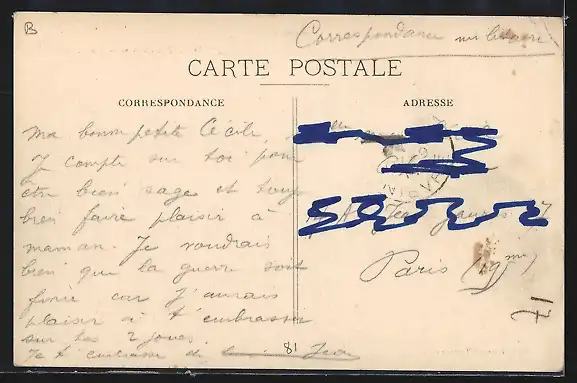 B
Correspondance militaire
CARTE POSTALE
CORRESPONDANCE
ADRESSE
Ma bonne petite Cécile,
Je compte sur toi pour
être bien sage et
bien faire plaisir à
maman. Je voudrais
bien que la guerre soit
finie car j'aurais
plaisir à t'embrasser
sur tes 2 joues.
Je t'embrasse
Paris (19me)
81